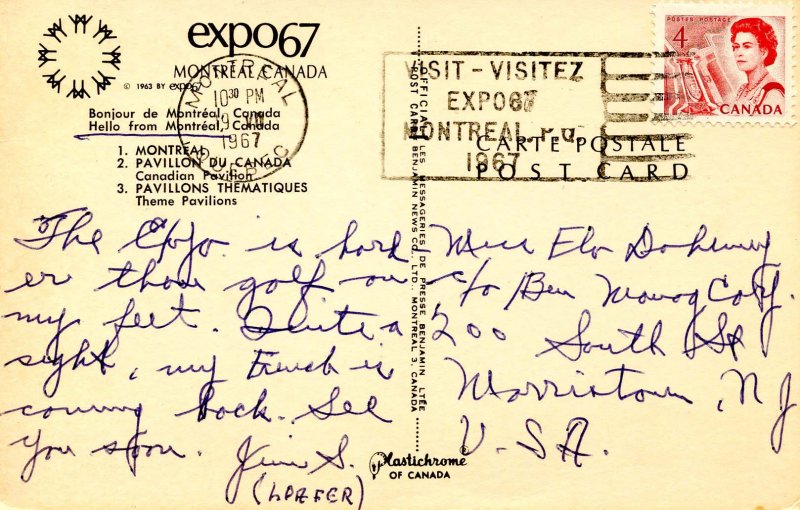 expo67
MONTRÉAL, CANADA
© 1963 BY expo67
Bonjour de Montréal, Canada
Hello from Montréal, Canada
1. MONTRÉAL
2. PAVILLON DU CANADA
Canadian Pavilion
3. PAVILLONS THÉMATIQUES
Theme Pavilions
MONTREAL
10 30 PM
1967
QUEBEC
VISIT - VISITEZ
EXPO67
MONTREAL P.Q.
1967
POSTES POSTAGE
4
CANADA
CARTE POSTALE
POST CARD
The Expo is hard-
er than golf on
my feet. Quite a
sight, my French is
coming back. See
you soon.
Jim S.
(LOAFER)
Miss Elo
c/o Ben Corp.
200 South St
Morristown, NJ
U.S.A.
OFFICIAL LES MESSAGERIES DE PRESSE BENJAMIN LTÉE
POST CARD BENJAMIN NEWS CO., LTD. MONTREAL 3, CANADA
Plastichrome
OF CANADA